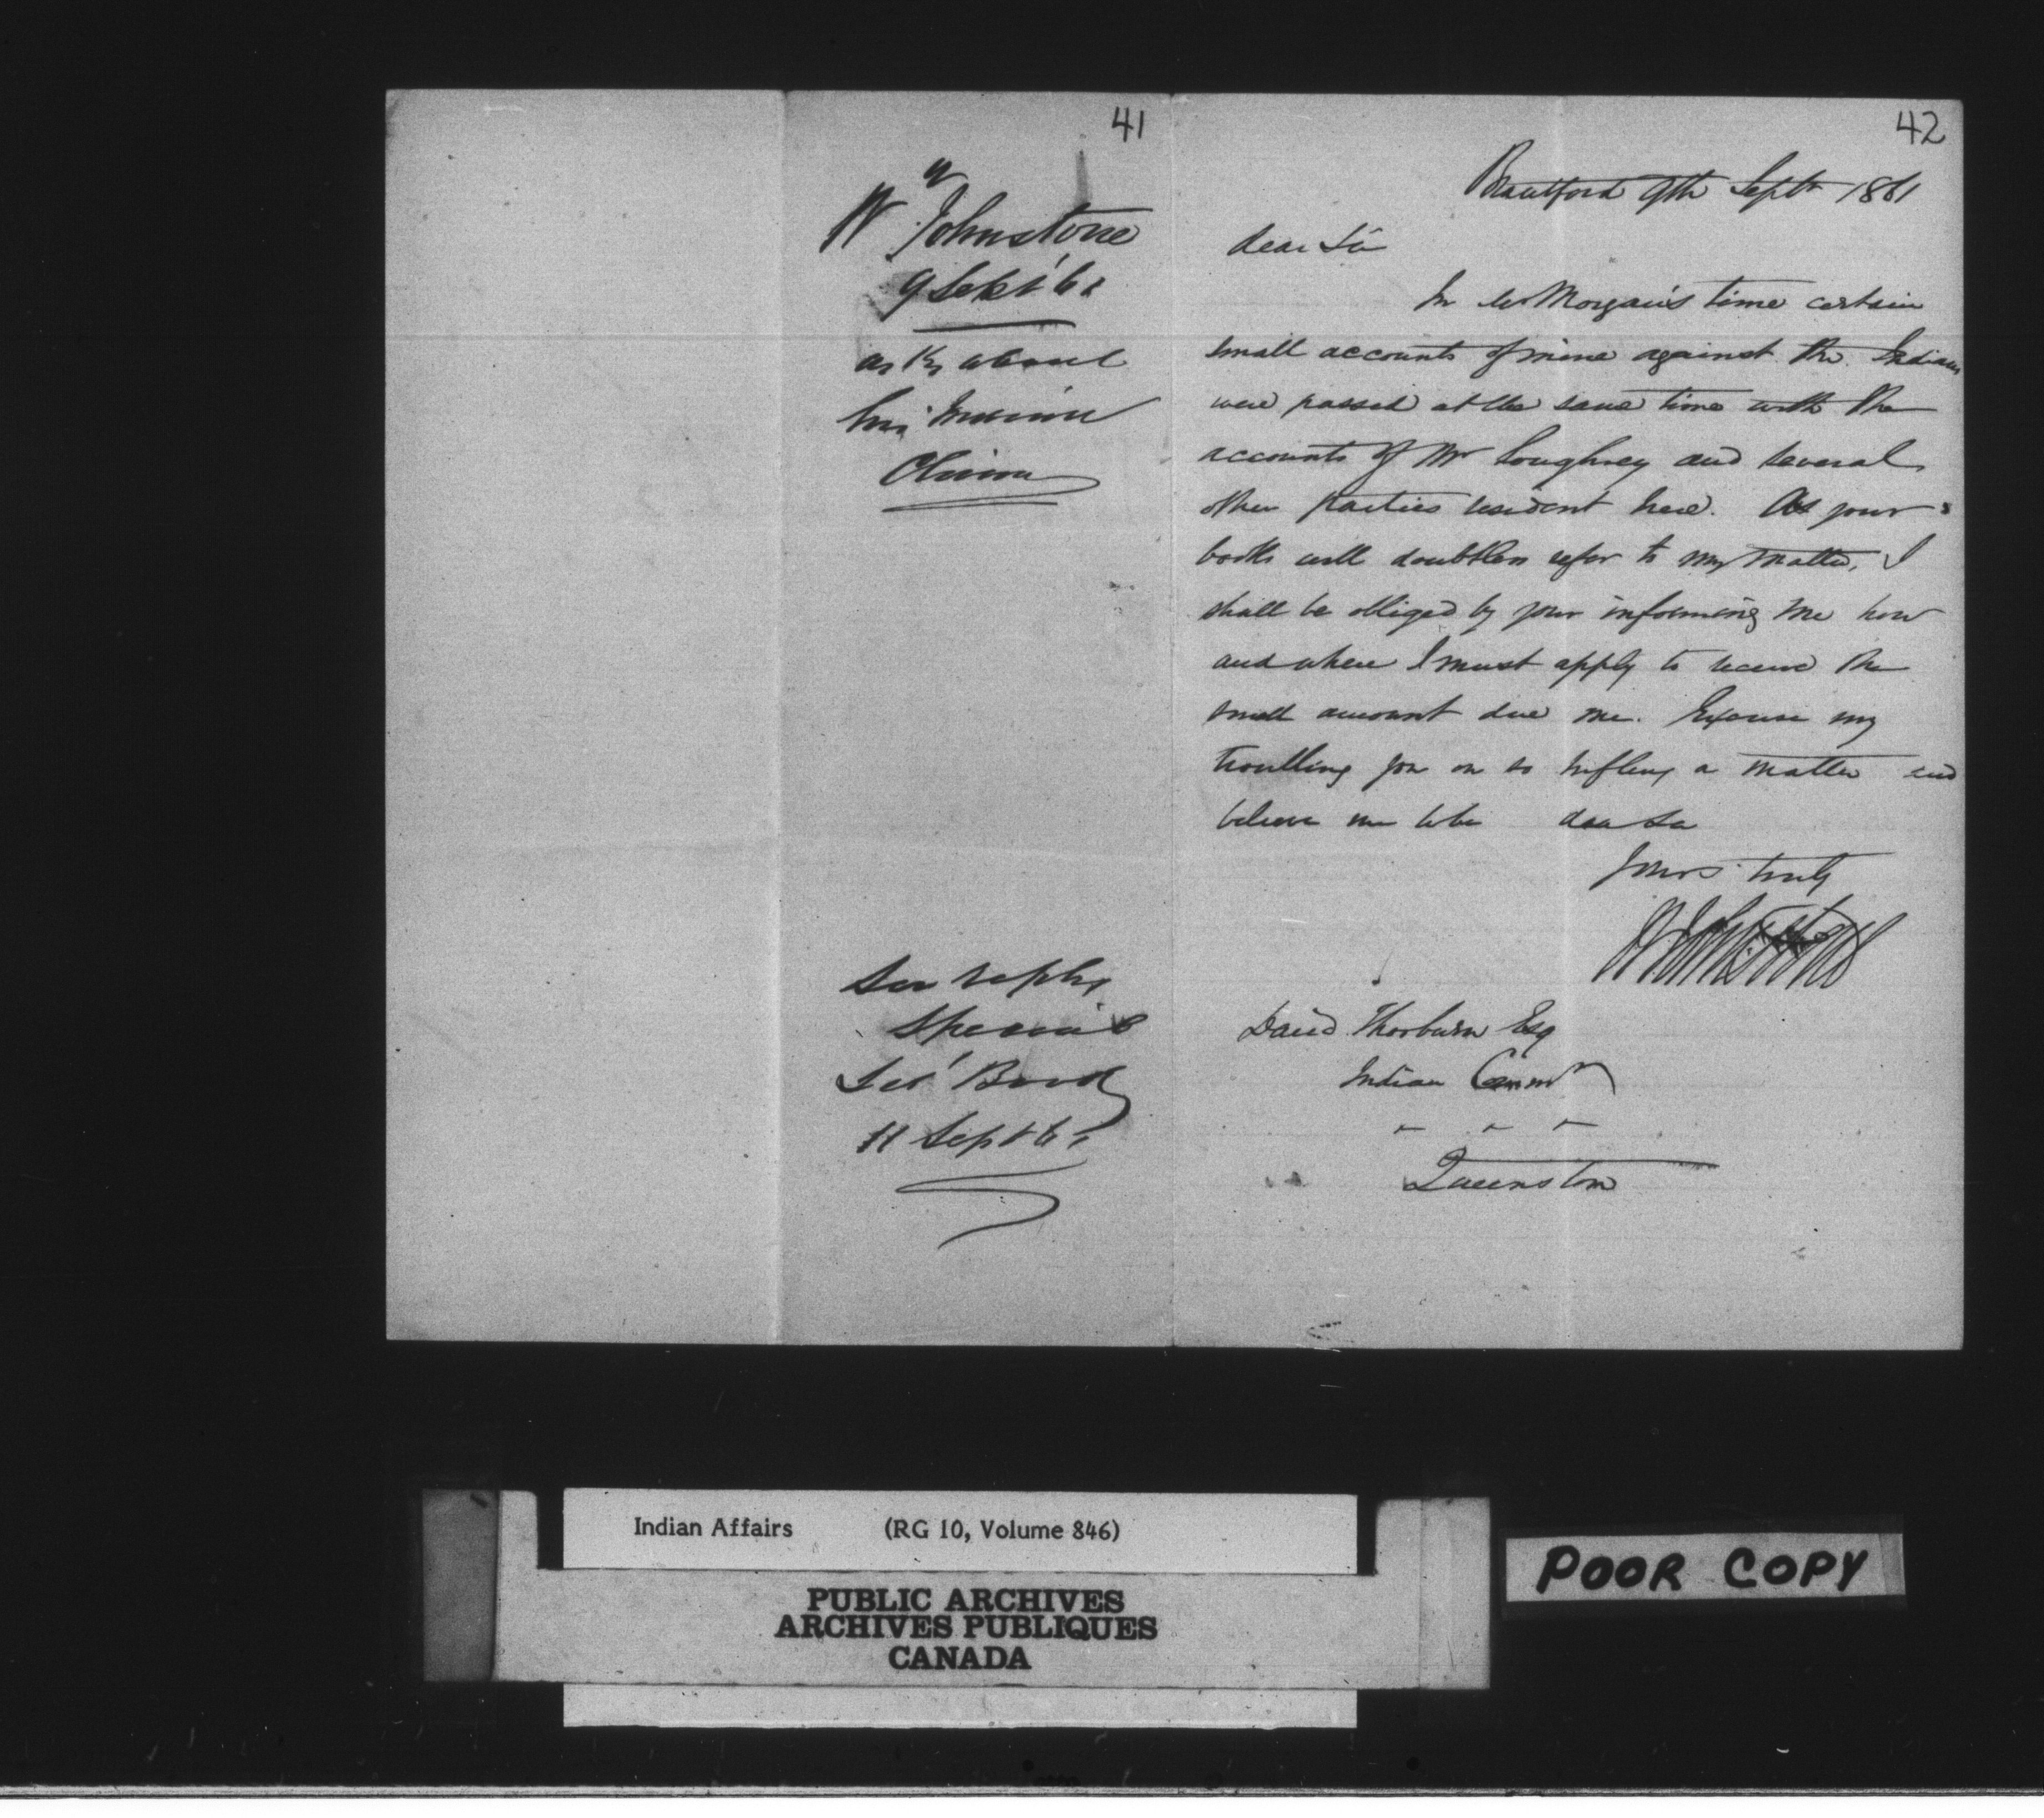 41
W Johnstone
9 Sept 61
asks about
his
Claim
See reply
Special
Let Book
11 Sept 61
42
Brantford 9th Sept 1861
Dear Sir
In Mr Morgan's time certain
small accounts of mine against the Indians
were passed at the same time with the
accounts of Mr Loughrey and several
other parties resident here. As your
books will doubtless refer to my matter, I
shall be obliged by your informing me how
and where I must apply to receive the
small amount due me. Excuse my
troubling you on so trifling a matter and
believe me to be dear Sir
Yours truly
W Johnstone
David Thorburn Esq
Indian Commr
" " "
Queenston
Indian Affairs (RG 10, Volume 846)
PUBLIC ARCHIVES
ARCHIVES PUBLIQUES
CANADA
POOR COPY